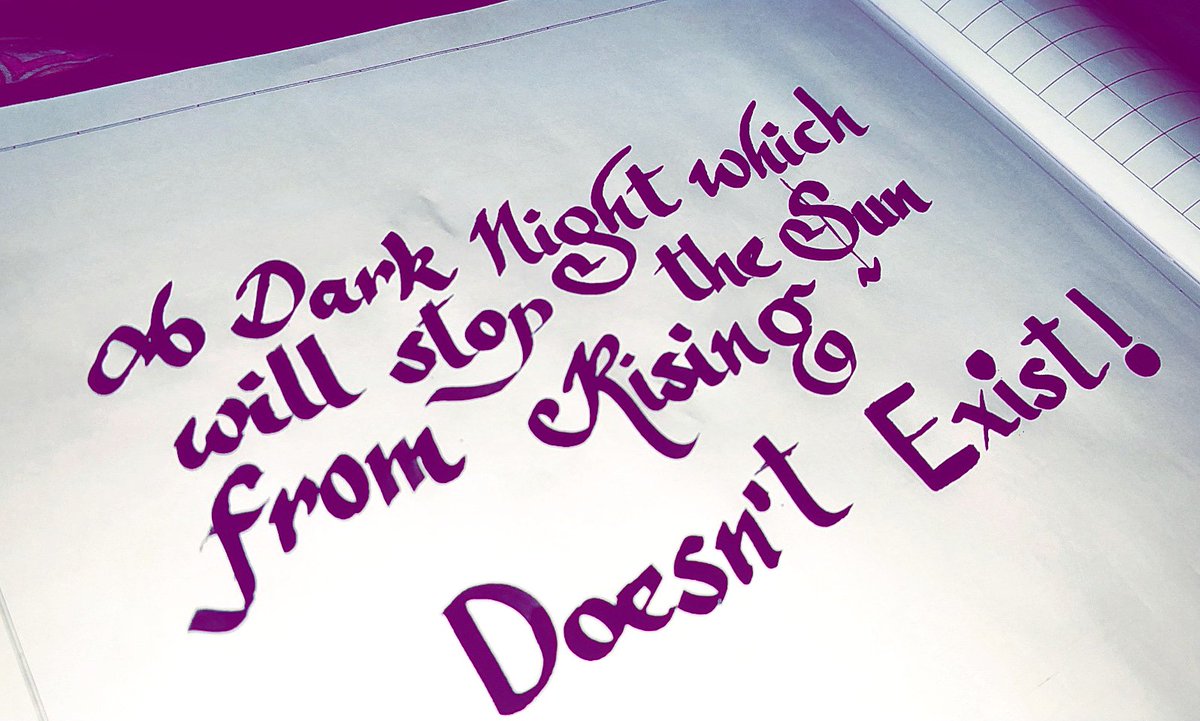 A Dark Night which
will stop the Sun
from Rising ~
Doesn't Exist!